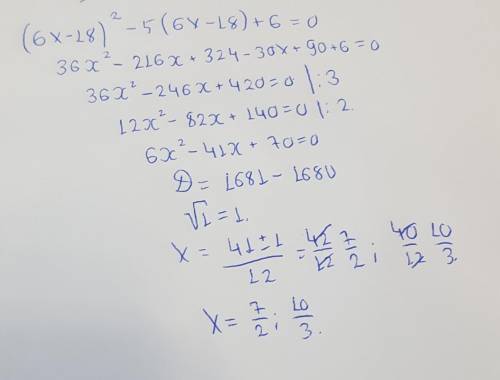 (6x-18)² - 5(6x-18) + 6 = 0
36x² - 216x + 324 - 30x + 90 + 6 = 0
36x² - 246x + 420 = 0 | : 3
12x² - 82x + 140 = 0 | : 2.
6x² - 41x + 70 = 0
D = 1681 - 1680
√1 = 1.
x = (41 ± 1)/12 = 42/12 7/2 ; 40/12 10/3.
x = 7/2 ; 10/3.